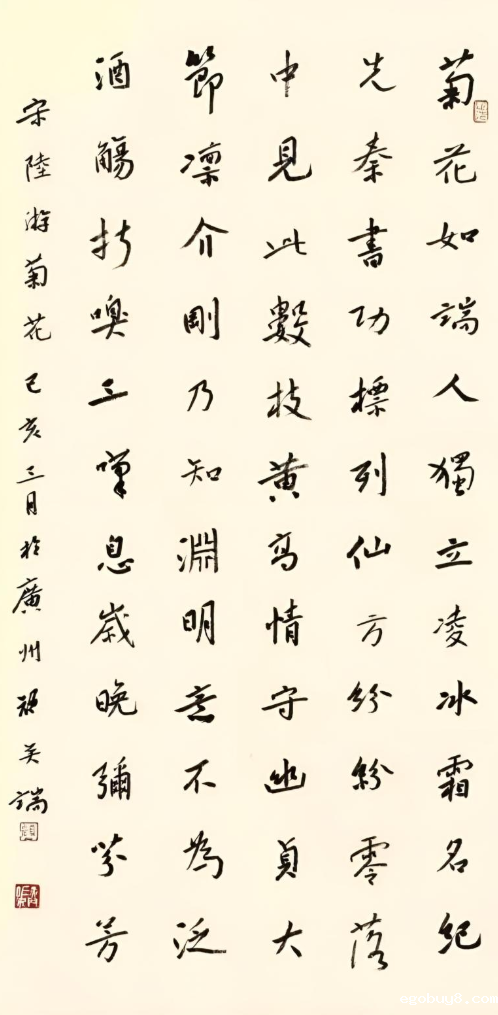 菊花如端人獨立凌冰霜名紀
先秦書功標列仙方紛紛零落
中見此數枝黄高情守幽貞大
節凛介剛乃知淵明意不為泛
酒觴折嗅三嘆息歲晚彌芬芳
宋陸游菊花己亥三月於廣州端
egobuy8.com